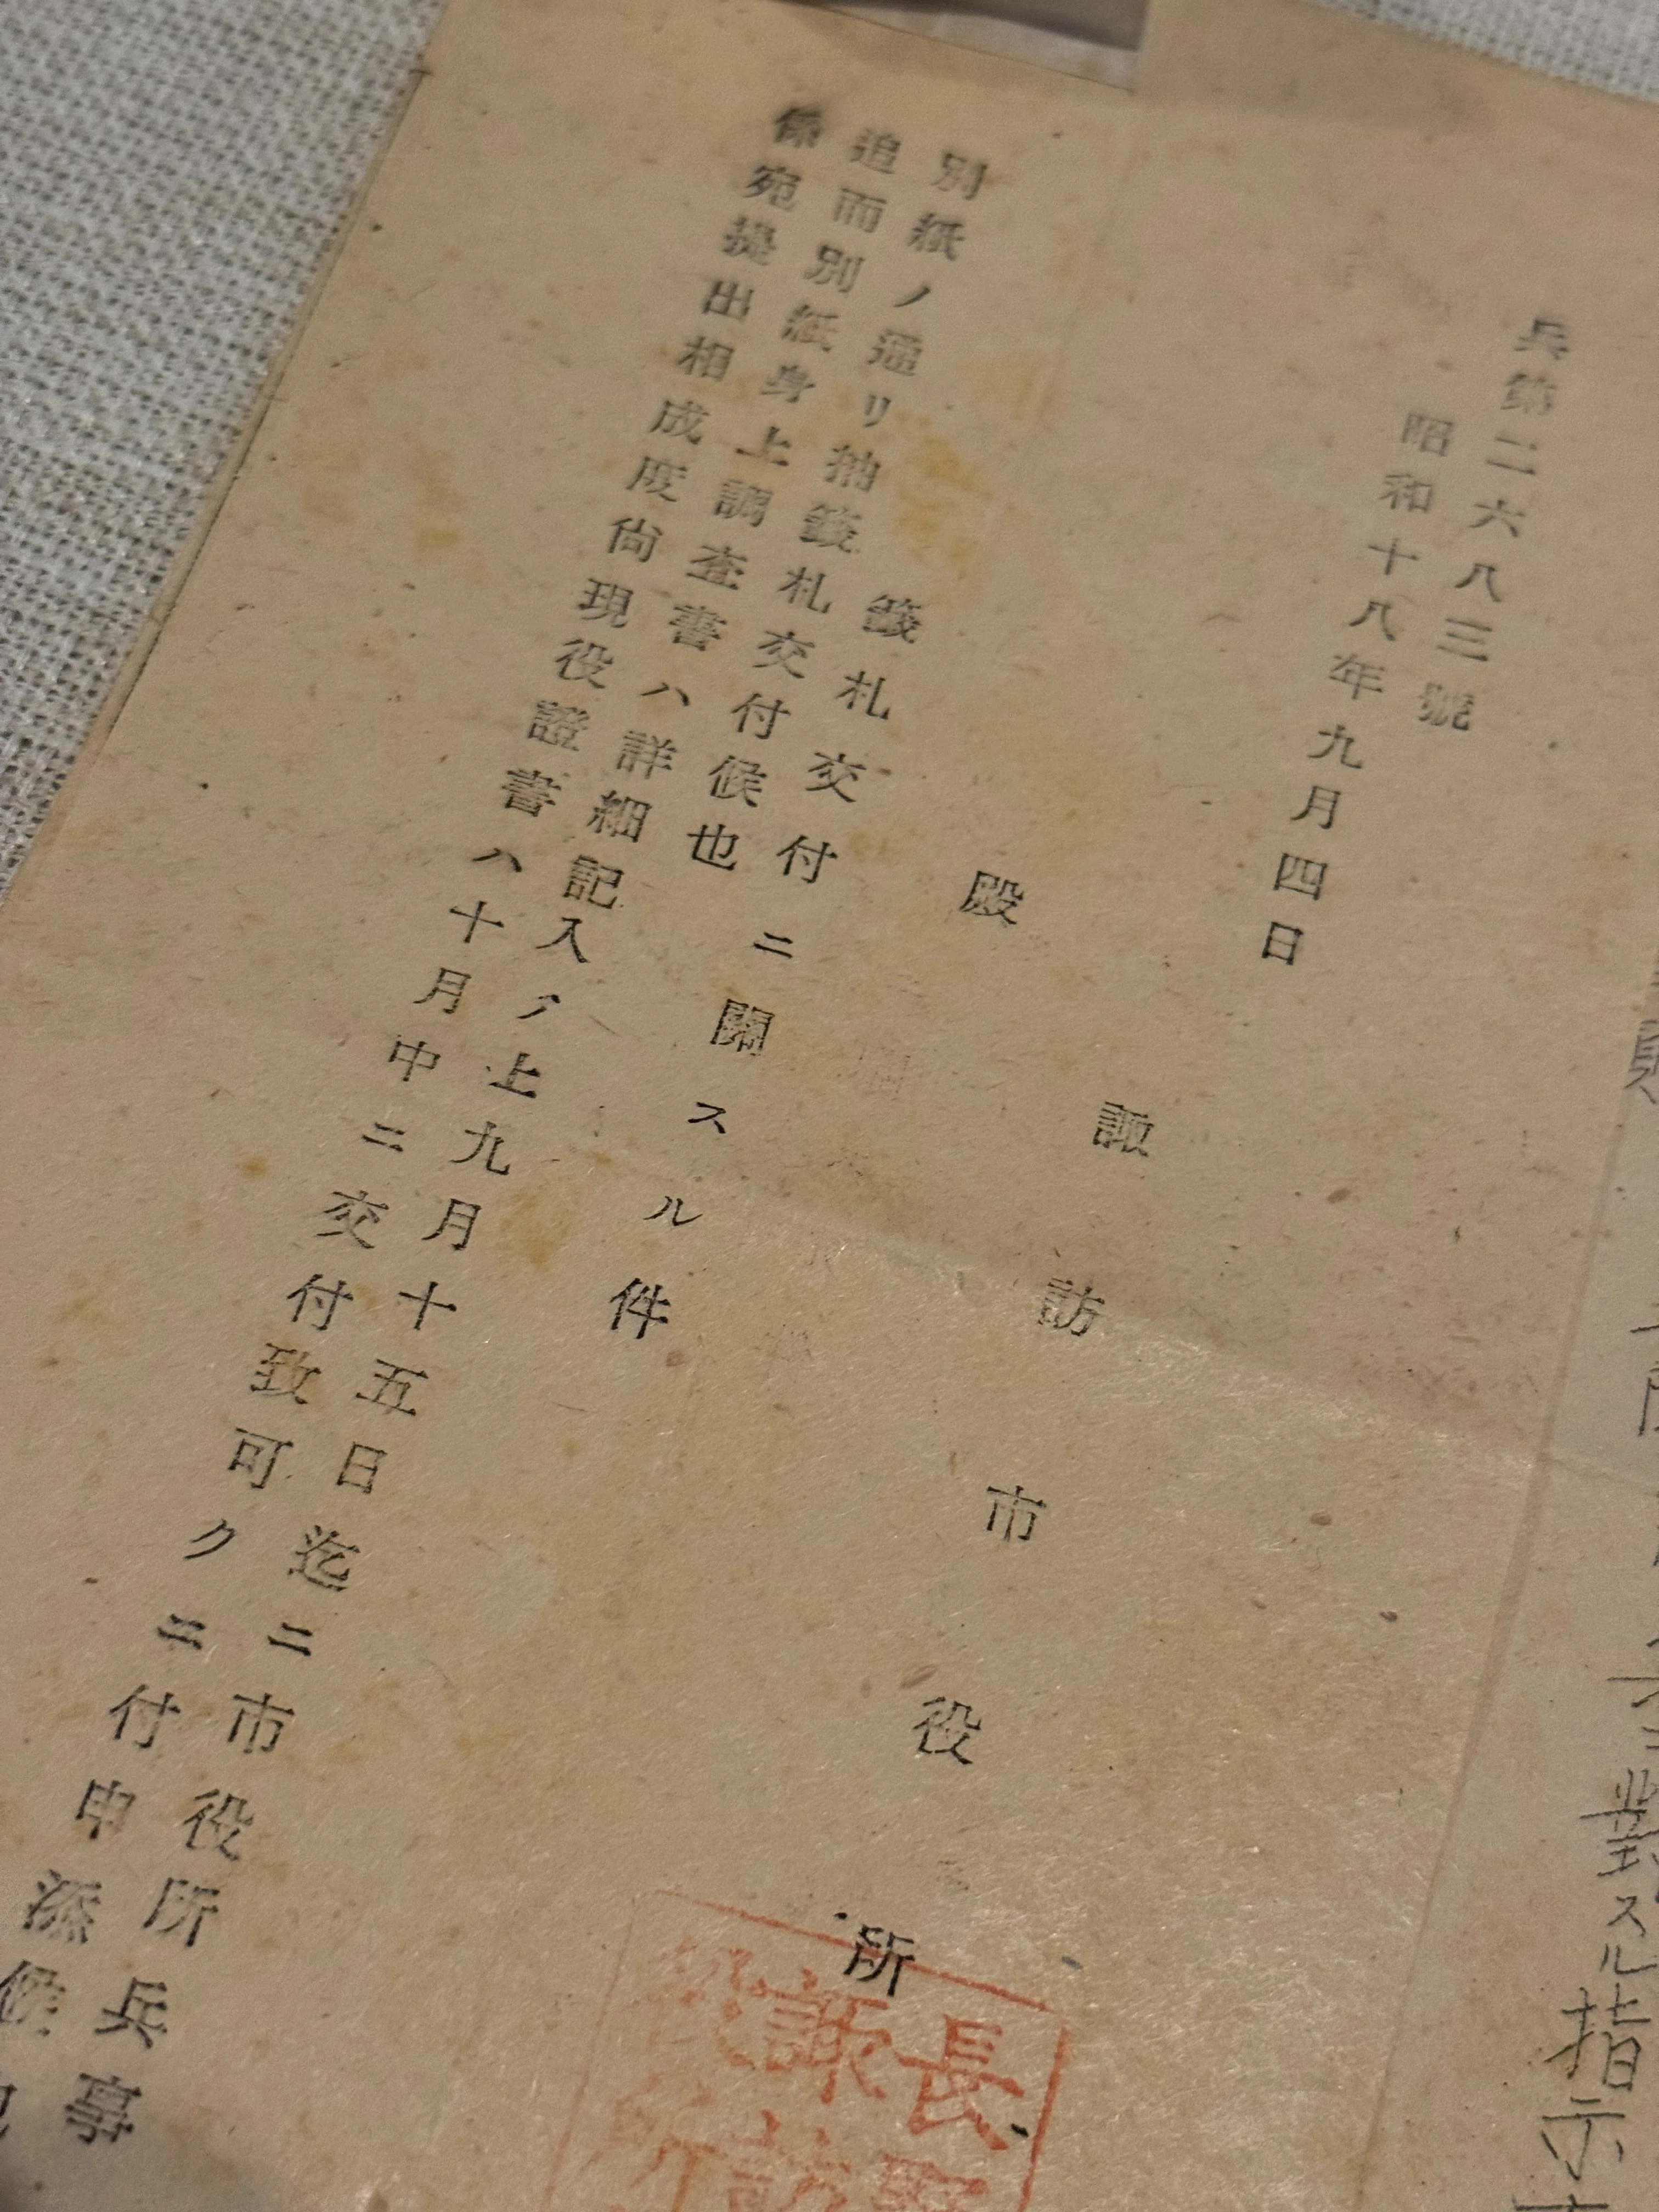 兵第二六八三號
昭和十八年九月四日
諏訪市役所
殿
籤札交付ニ關スル件
別紙ノ通リ抽籤札交付候也
追而別紙身上調査書ハ詳細記入ノ上九月十五日迄ニ市役所兵事
係宛提出相成度尚現役證書ハ十月中ニ交付致可クニ付申添候也
長
諏訪
對スル指示